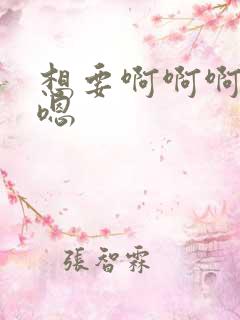 想要啊啊啊
嗯
張智霖